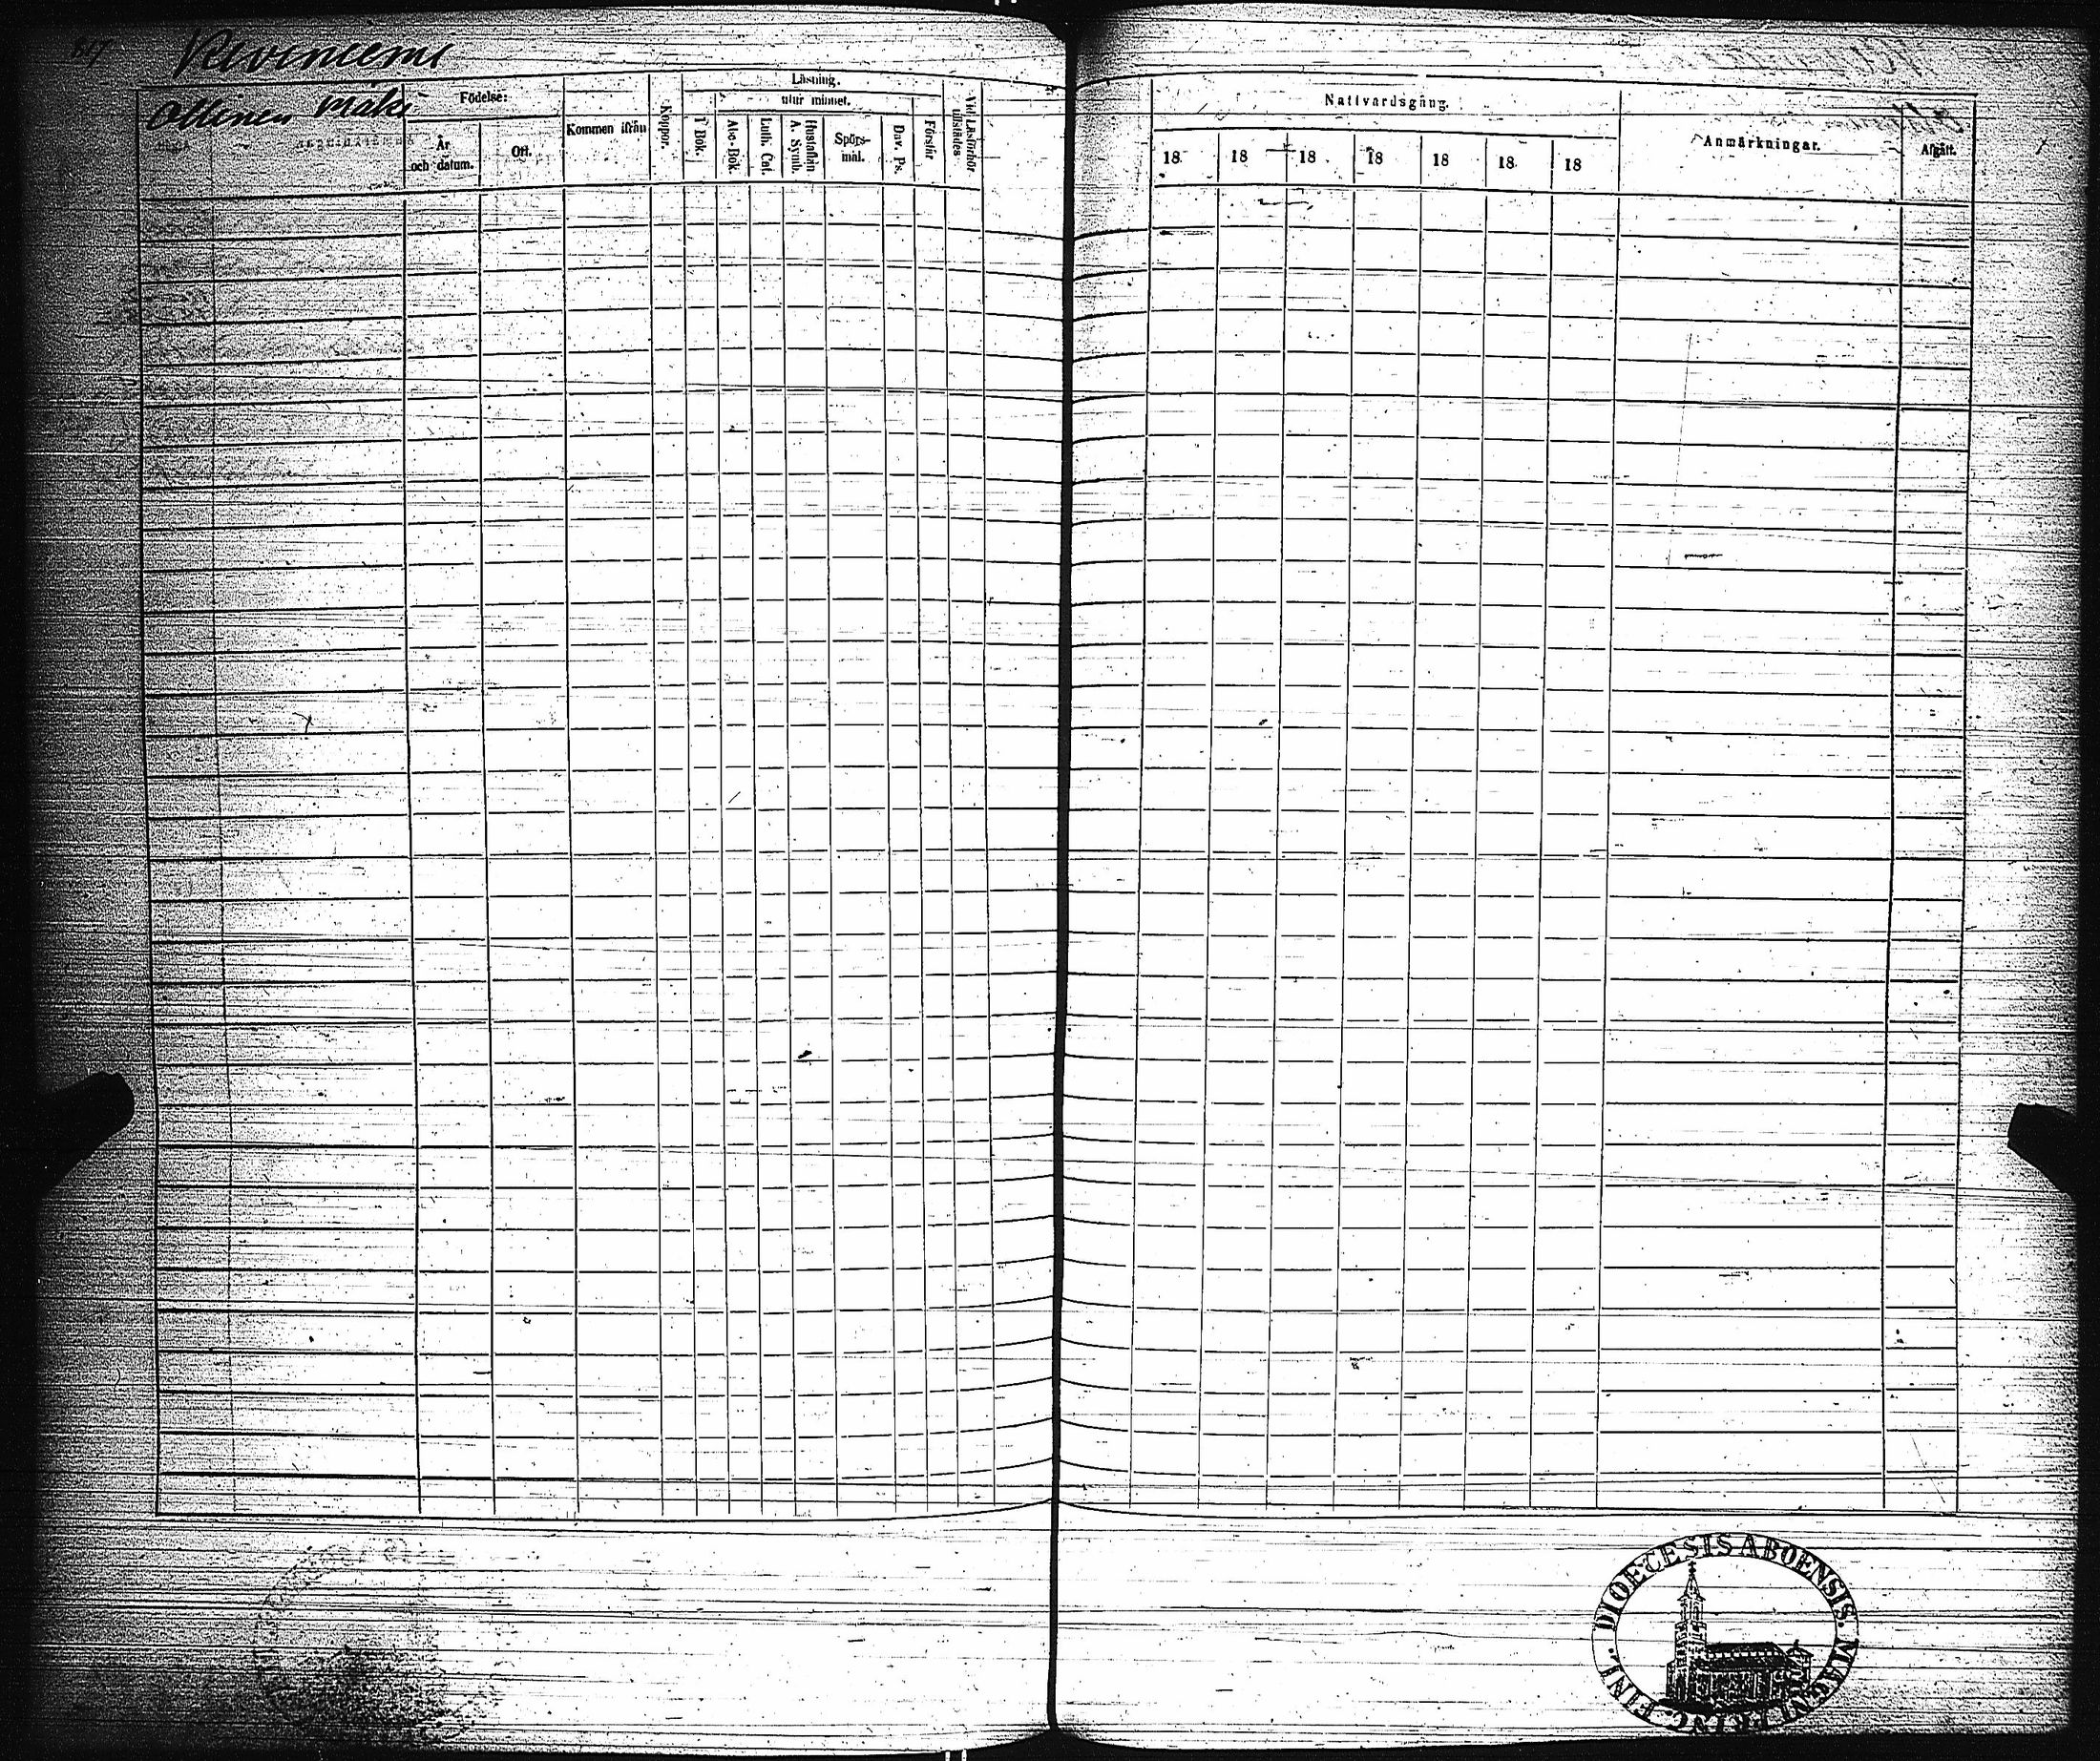 Kiviniemi
Ollinen Mäki
Födelse:
År
och datum.
Ort.
Kommen ifrån
Koppor.
Läsning.
utur minnet.
I Bok.
Abc-Bok.
Luth. Cat.
Hustaflan
A. Symb.
Spörs-
mål.
Dav. Ps.
Förstår
Vid Läsförhör
tillstädes
Nattvardsgång.
18 18 18 18 18 18 18
Anmärkningar.
Afgått.
DIOECESIS ABOENSIS. MAGNI PRINC. FINL.